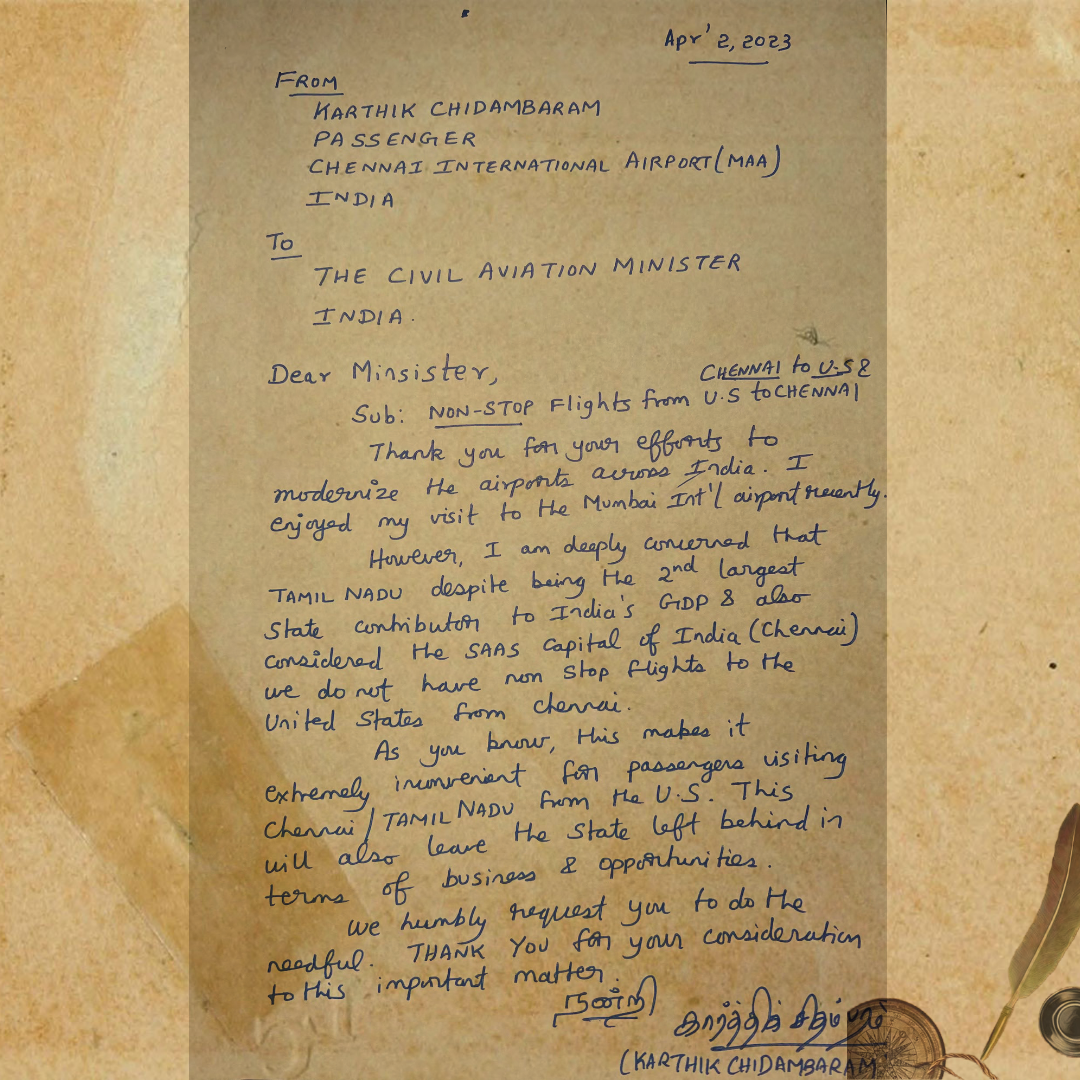 Apr' 2, 2023
FROM
KARTHIK CHIDAMBARAM
PASSENGER
CHENNAI INTERNATIONAL AIRPORT (MAA)
INDIA
To
THE CIVIL AVIATION MINISTER
INDIA.
Dear Minsister,
CHENNAI to U.S &
Sub: NON-STOP Flights from U.S to CHENNAI
Thank you for your efforts to
modernize the airports across India. I
enjoyed my visit to the Mumbai Int'l airport recently.
However, I am deeply concerned that
TAMIL NADU despite being the 2nd largest
State contributor to India's GDP & also
considered the SAAS capital of India (Chennai)
we do not have non stop flights to the
United States from Chennai.
As you know, this makes it
extremely inconvenient for passengers visiting
Chennai / TAMIL NADU from the U.S. This
will also leave the State left behind in
terms of business & opportunities.
We humbly request you to do the
needful. THANK YOU for your consideration
to this important matter.
நன்றி
கார்த்திக் சிதம்பரம்
(KARTHIK CHIDAMBARAM